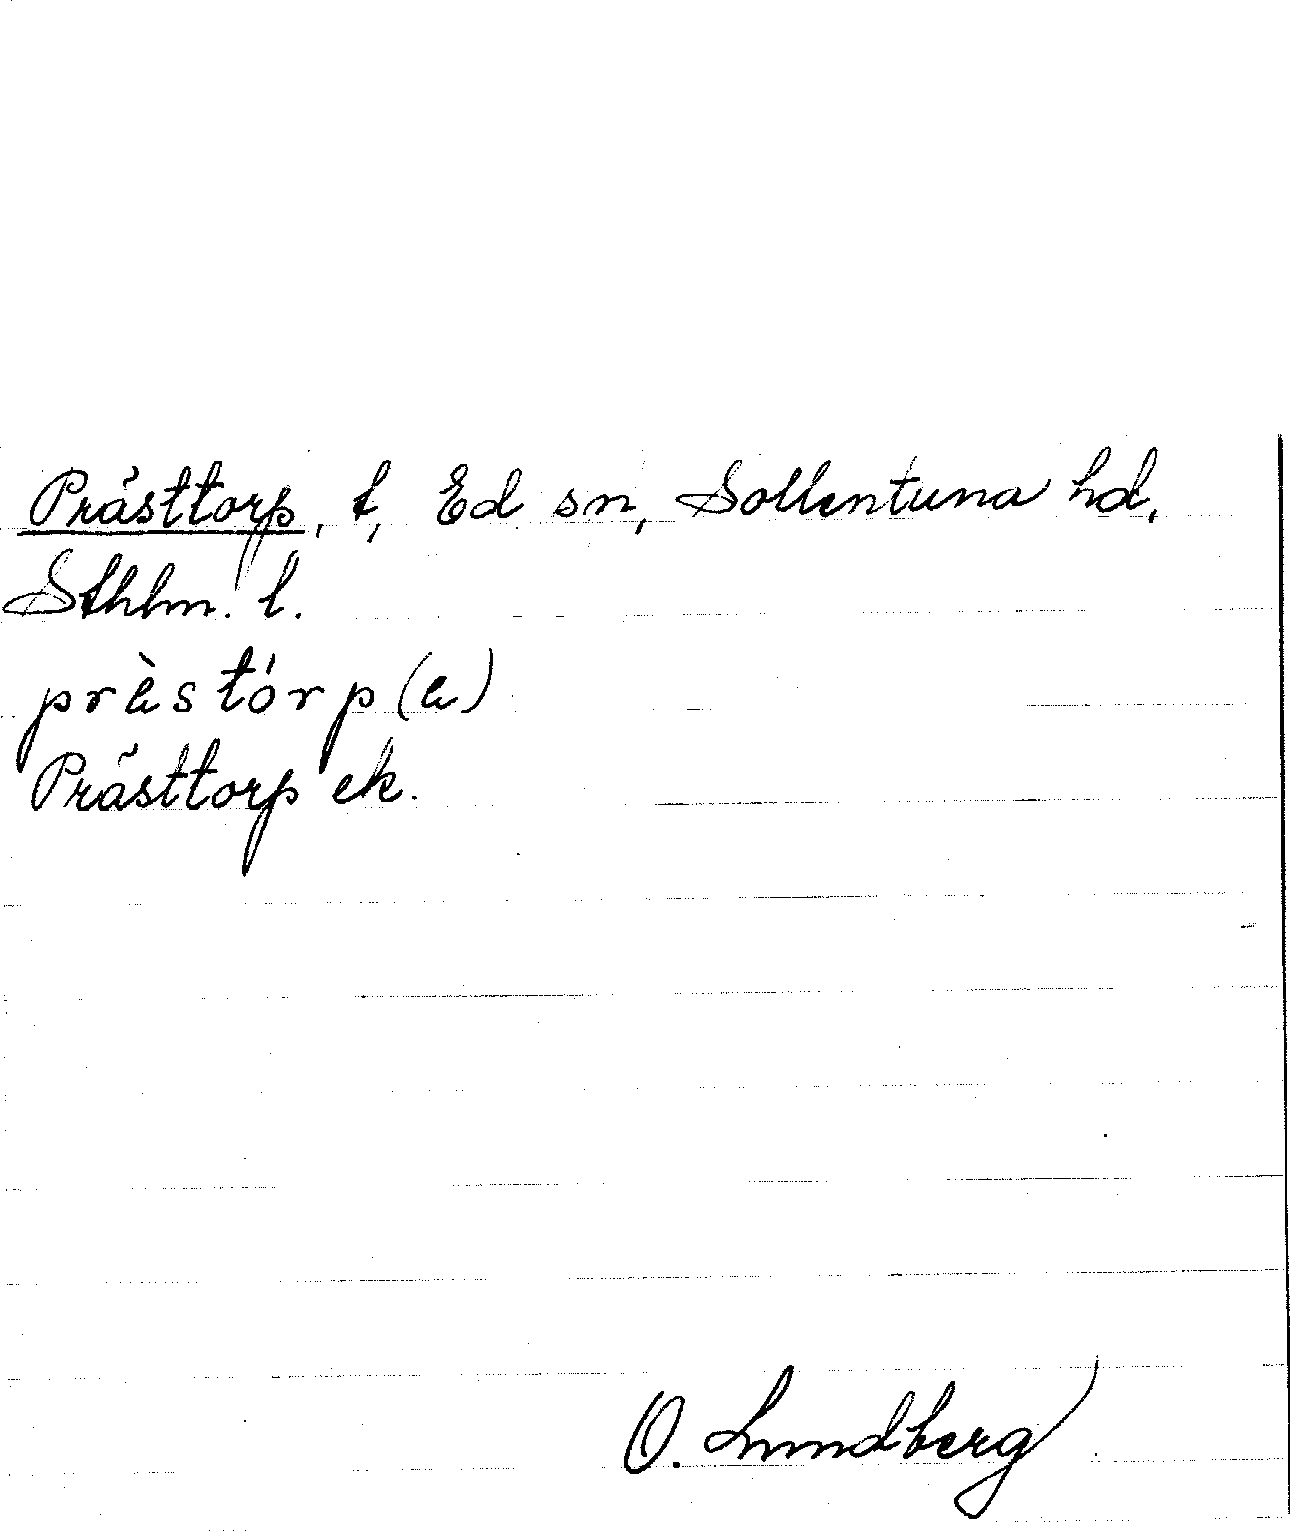 Prästtorp, t, Ed sn, Sollentuna hd,
Sthlm. l.
prὲstórp(a)
Prästtorp ek.
O. Lundberg